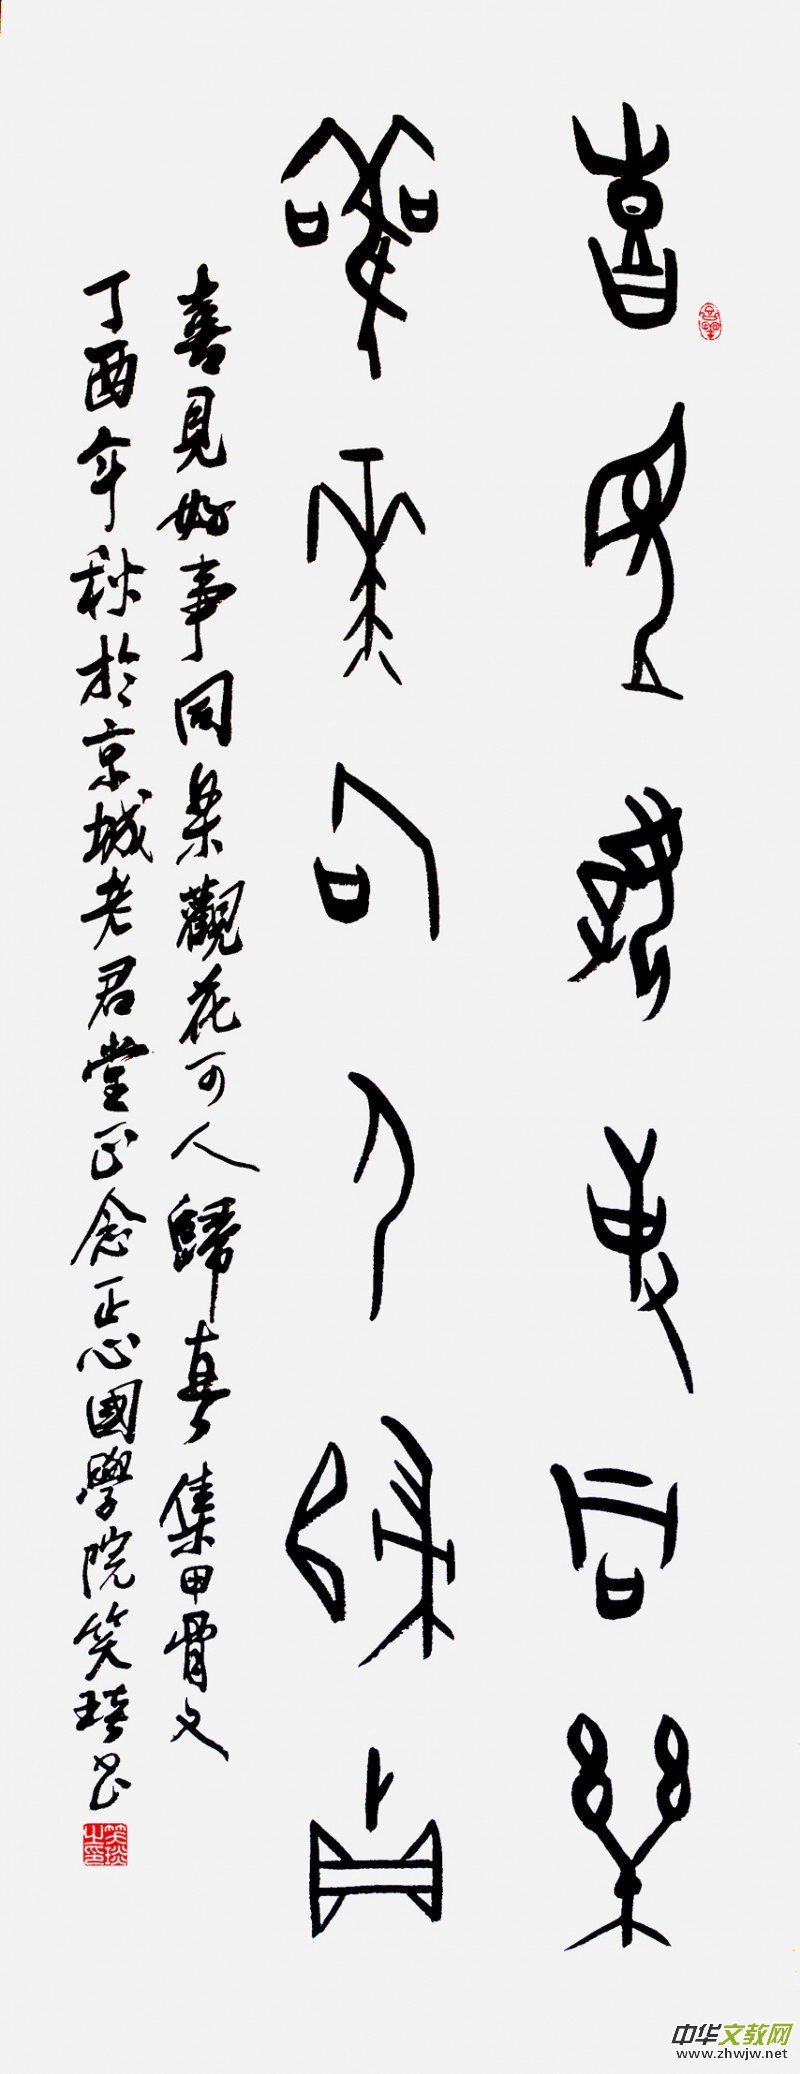 喜見好事同樂
觀花可人歸真
喜見好事同樂觀花可人歸真集甲骨文
丁酉年秋於京城老君堂正念正心國學院笑琰书
中华文教网
www.zhwjw.net